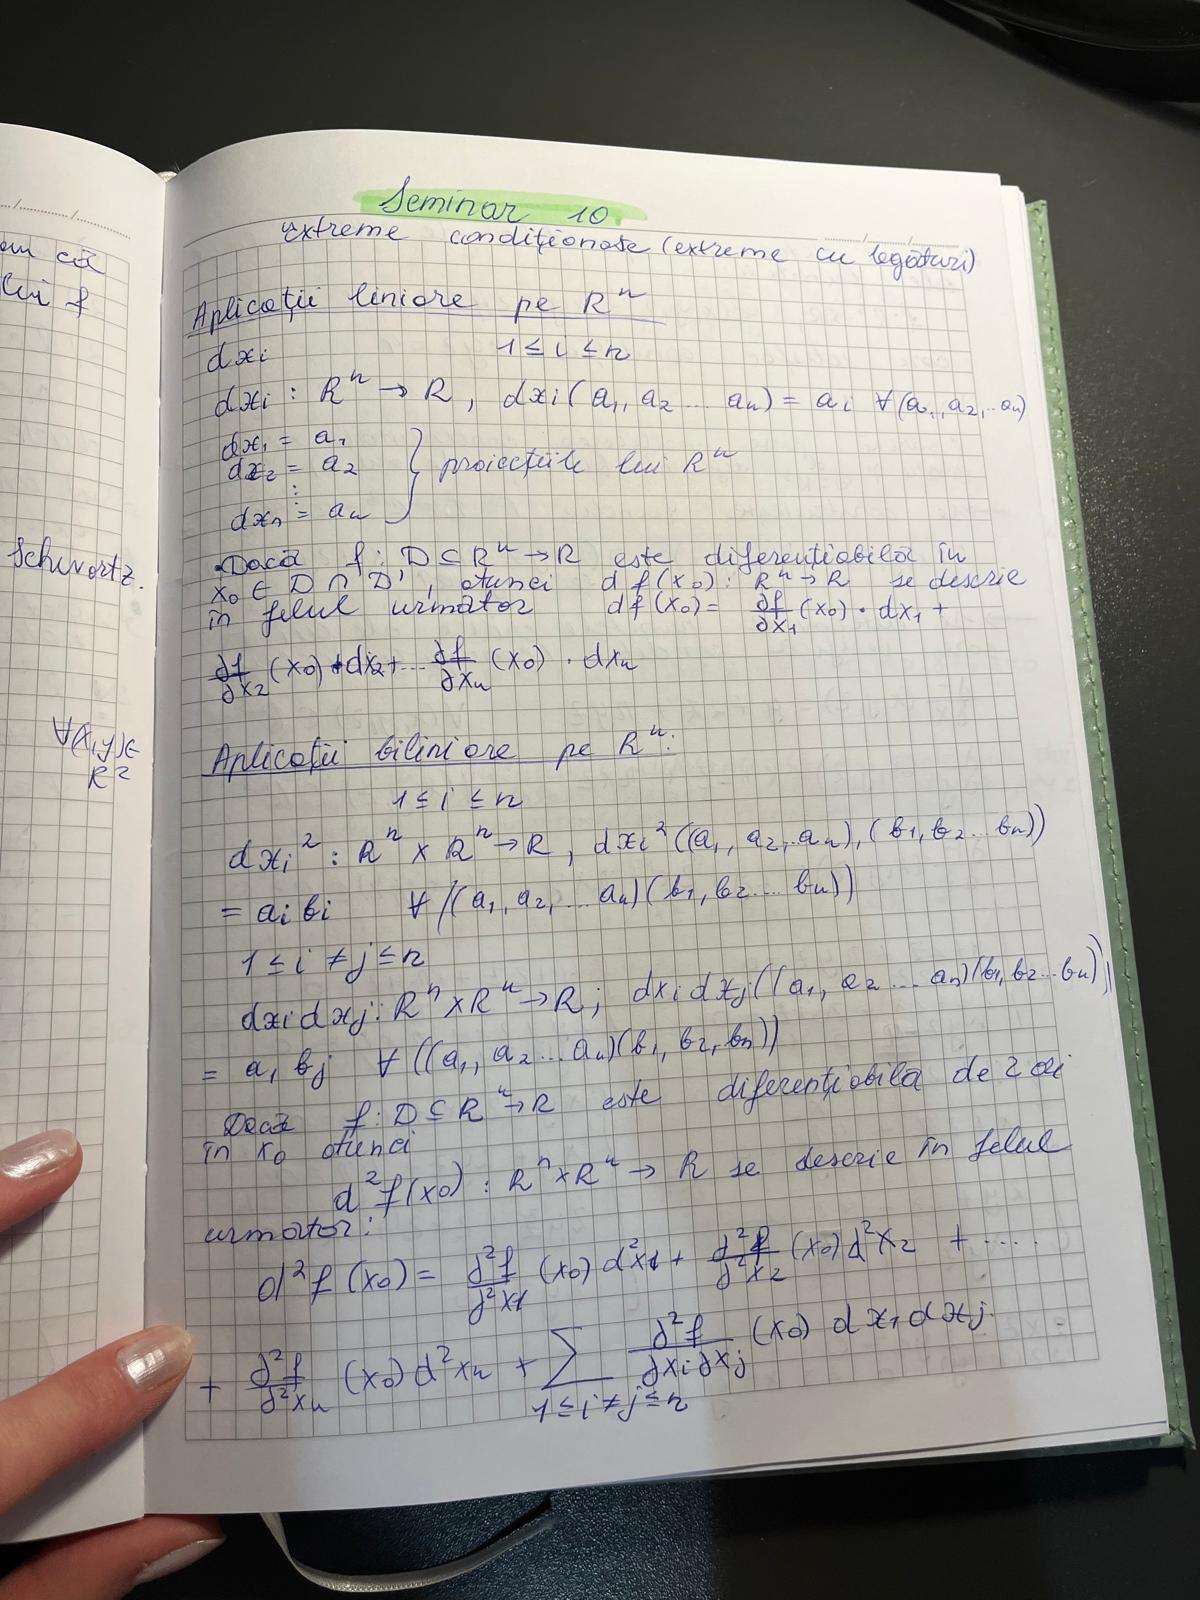 em că
lui f
Schwartz.
∀(x,y)∈
R²
Seminar 10
Extreme condiționate (extreme cu legături)
Aplicații liniare pe Rⁿ
dxi 1 ≤ i ≤ n
dxi : Rⁿ → R, dxi(a₁, a₂ ... an) = ai ∀(a₁, a₂, ..an)
dx₁ = a₁
dx₂ = a₂
⋮ } proiecțiile lui Rⁿ
dxn = an
Dacă f : D ⊆ Rⁿ → R este diferențiabilă în
x₀ ∈ D ∩ D', atunci df(x₀) : Rⁿ → R se descrie
în felul următor df(x₀) = ∂f/∂x₁ (x₀) · dx₁ +
∂f/∂x₂ (x₀) + dx₂ + ... ∂f/∂xn (x₀) · dxn
Aplicații biliniare pe Rⁿ:
1 ≤ i ≤ n
dxi² : Rⁿ × Rⁿ → R, dxi²((a₁, a₂, .. an), (b₁, b₂ ... bn))
= ai bi ∀ ((a₁, a₂, ... an)(b₁, b₂ .... bn))
1 ≤ i ≠ j ≤ n
dxi dxj : Rⁿ × Rⁿ → R; dxi dxj((a₁, a₂ ... an)(b₁, b₂ ... bn))
= a₁ bj ∀ ((a₁, a₂ ... an)(b₁, b₂, bn))
Dacă f : D ⊆ Rⁿ → R este diferențiabila de 2 ori
în x₀ atunci
d²f(x₀) : Rⁿ × Rⁿ → R se descrie în felul
urmator:
d²f(x₀) = ∂²f/∂²x1 (x₀) d²x1 + ∂²f/∂²x₂ (x₀) d²x₂ + ....
+ ∂²f/∂²xn (x₀) d²xn + ∑ 1≤i≠j≤n ∂²f/∂xi∂xj (x₀) dx₁ dxj.